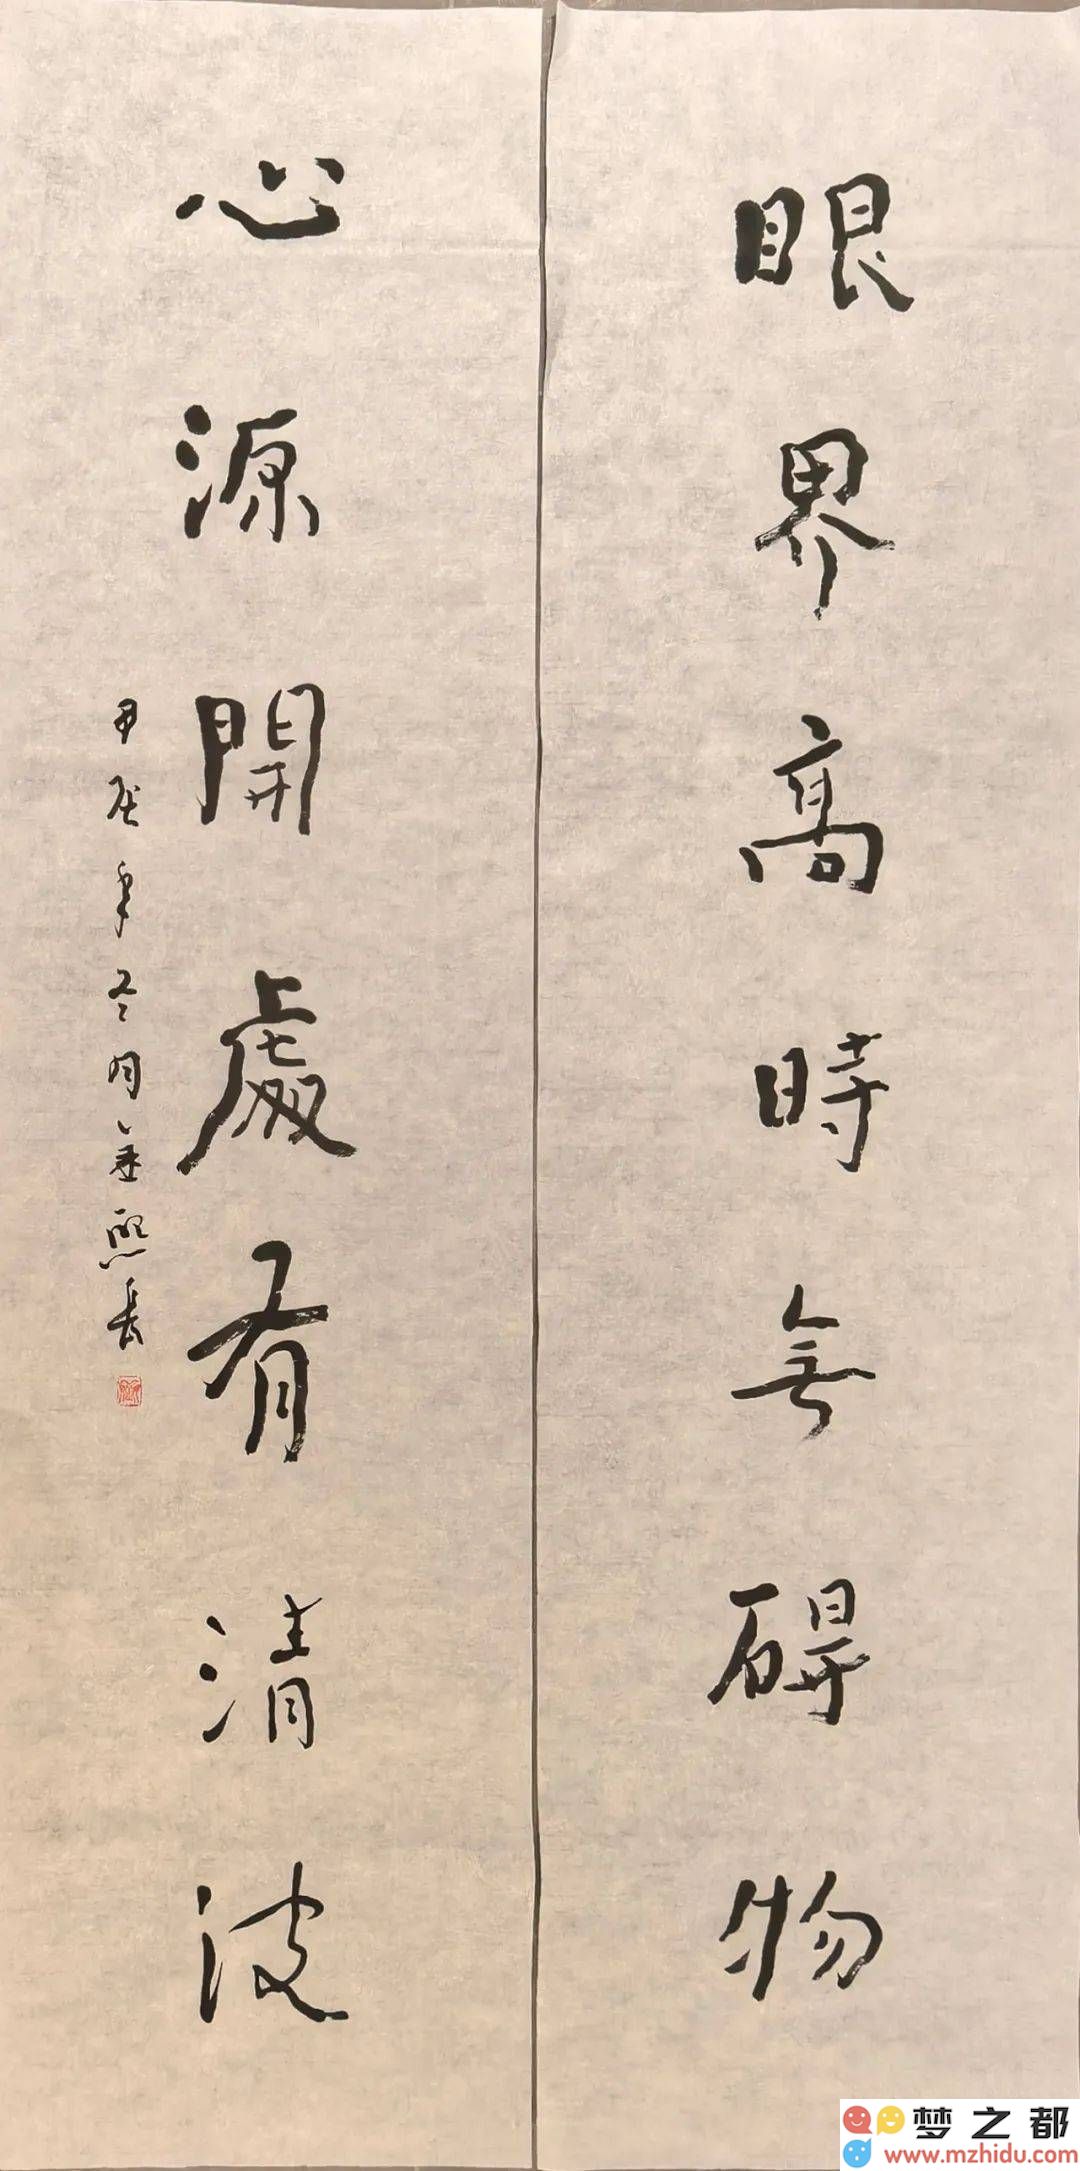 眼界高時無碍物
心源開處有清波
甲辰年冬月姜熙長
梦之都
www.mzhidu.com